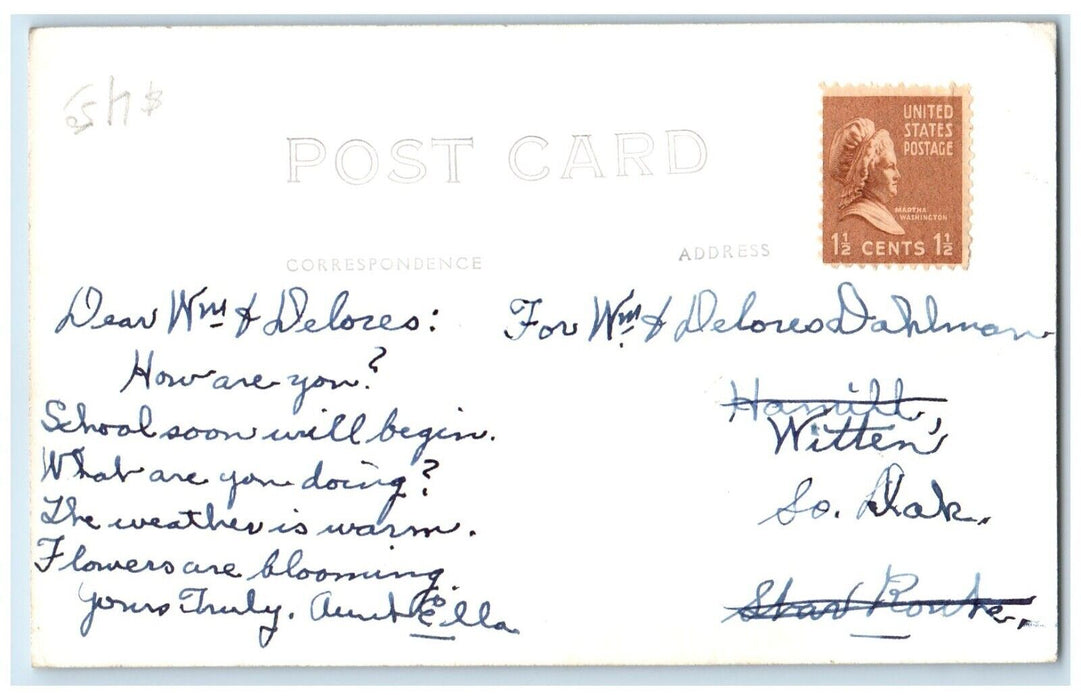 UNITED
STATES
POSTAGE
MARTHA
WASHINGTON
1½ CENTS 1½
POST CARD
CORRESPONDENCE
ADDRESS
Dear Wm & Delores:
How are you?
School soon will begin.
What are you doing?
The weather is warm.
Flowers are blooming.
Yours Truly, Aunt Ella
For Wm. & Delores Dahlman
Hamill,
Witten,
So. Dak.
Star Route,